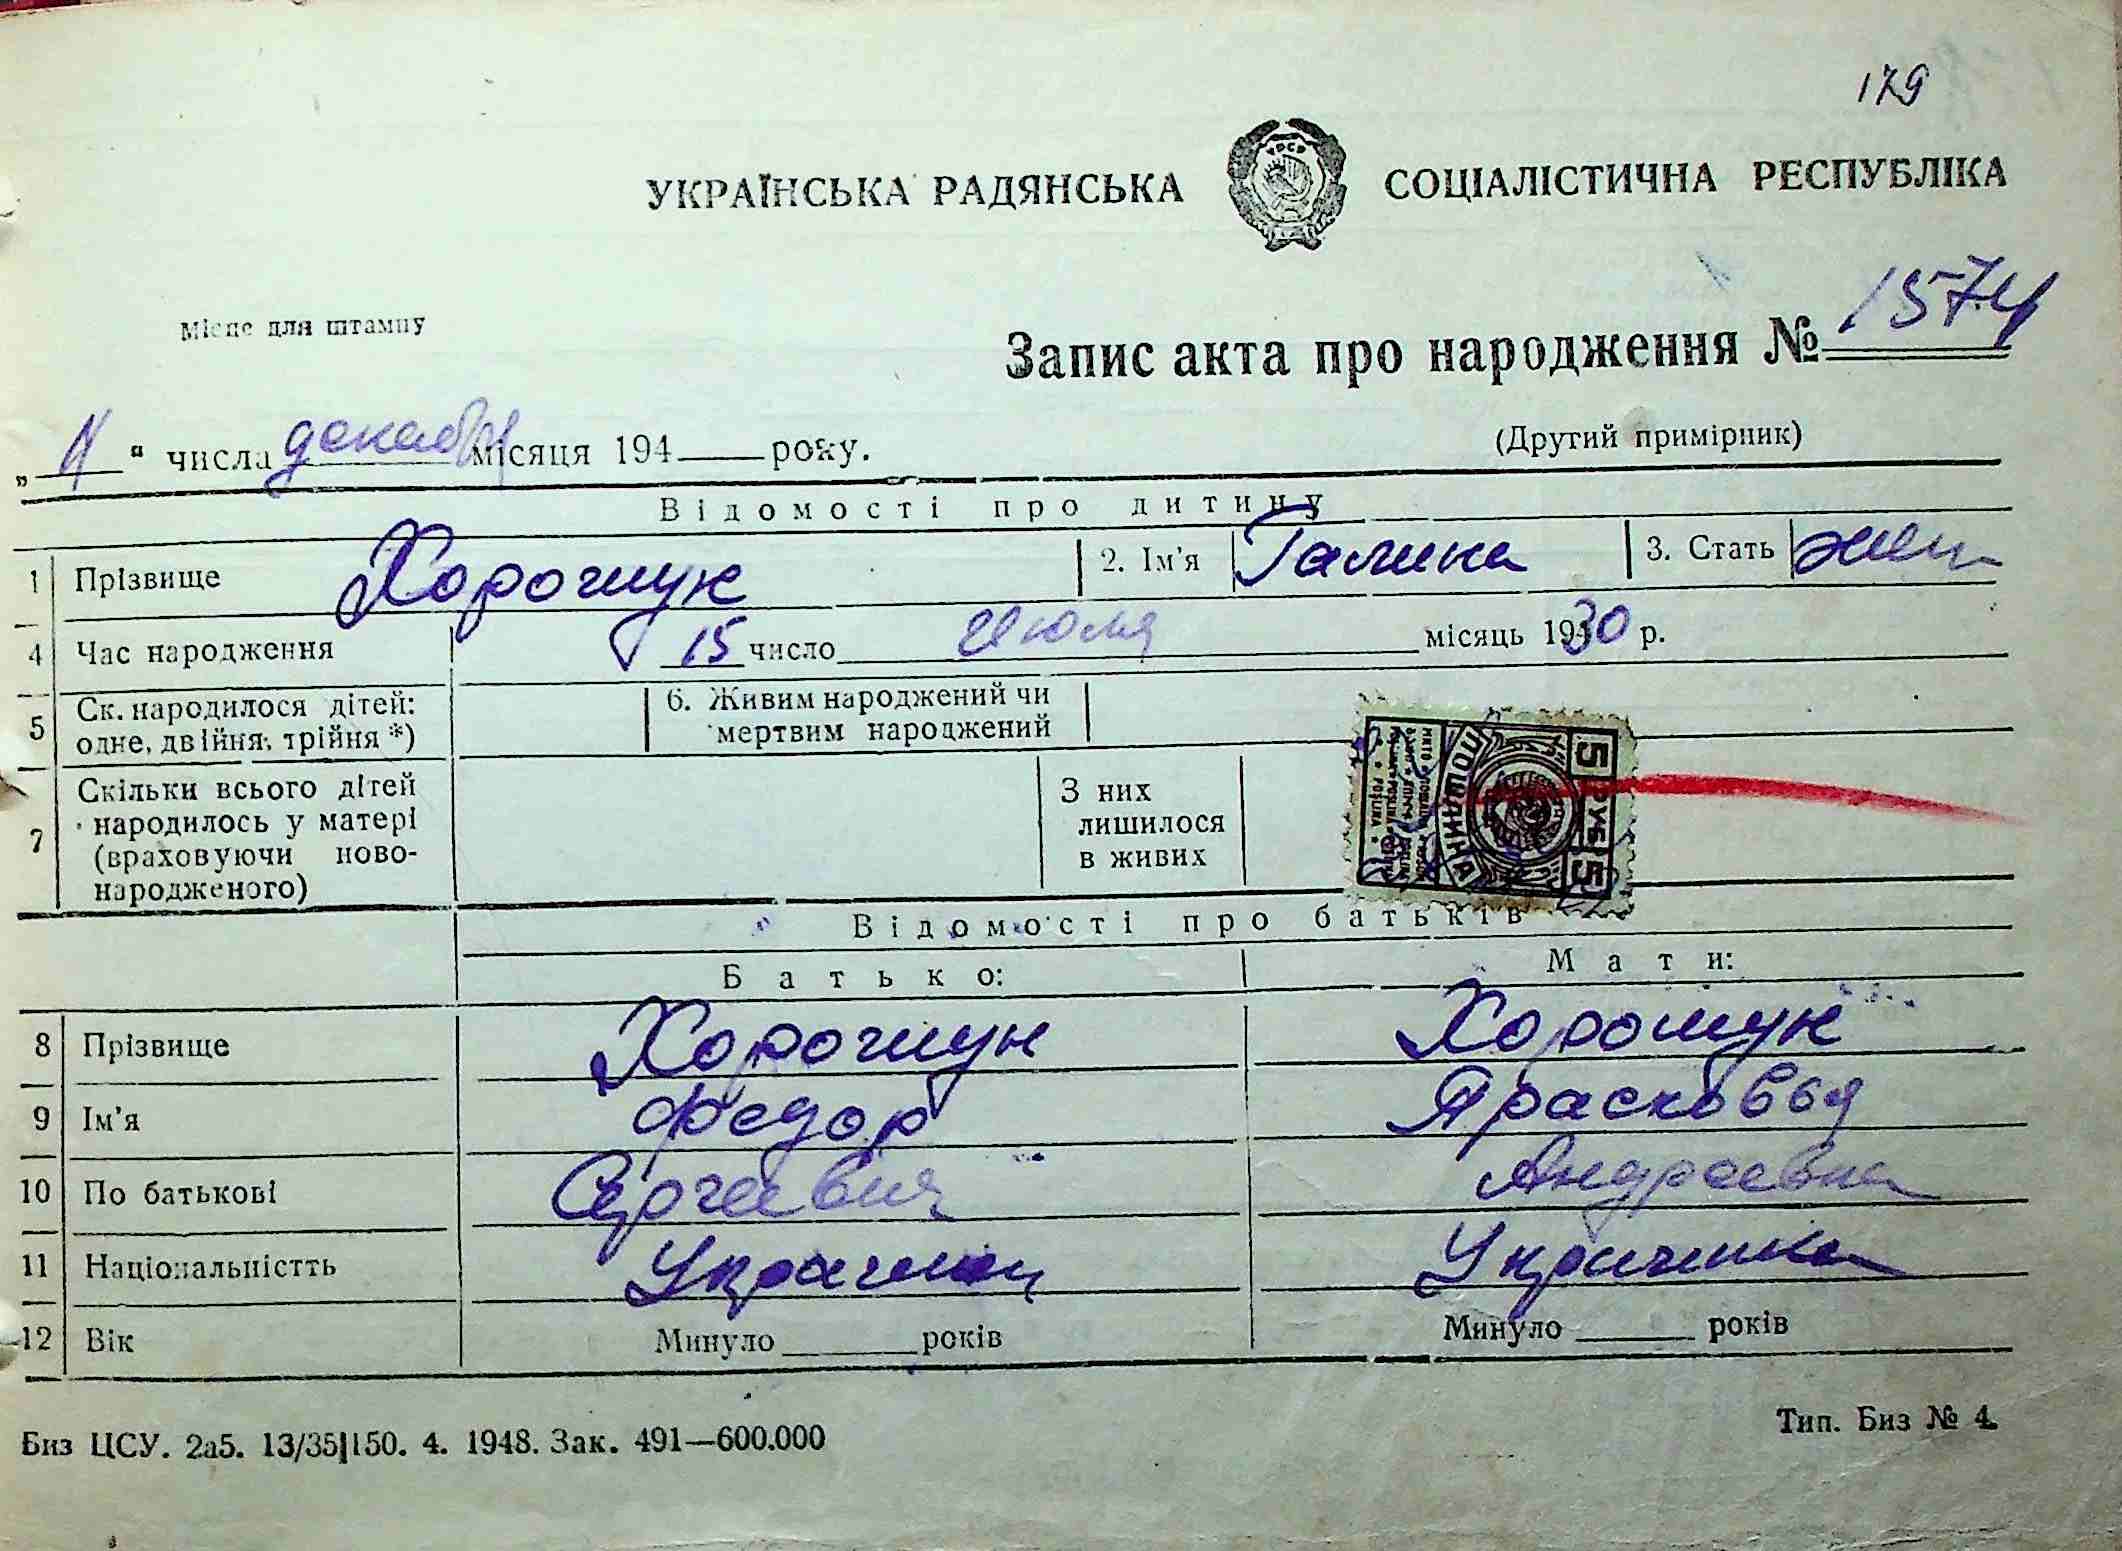 179
УКРАЇНСЬКА РАДЯНСЬКА СОЦІАЛІСТИЧНА РЕСПУБЛІКА
Місце для штампу
Запис акта про народження № 1574
(Другий примірник)
„ “ числа декабря місяця 194 року.
Відомості про дитину
1 Прізвище Хорошук 2. Ім’я Галина 3. Стать жен
4 Час народження 15 число Июля місяць 1930 р.
5 Ск. народилося дітей: одне, двійня, трійня *) 6. Живим народжений чи мертвим народжений
7 Скільки всього дітей народилось у матері (враховуючи новонародженого) З них лишилося в живих
5 РУБ 5
Відомості про батьків
Батько: Мати:
8 Прізвище Хорошук Хорошук
9 Ім’я Федор Прасковья
10 По батькові Сергеевич Андреевна
11 Національністть Украинец Украинка
12 Вік Минуло років Минуло років
Биз ЦСУ. 2а5. 13/35|150. 4. 1948. Зак. 491—600.000
Тип. Биз № 4.